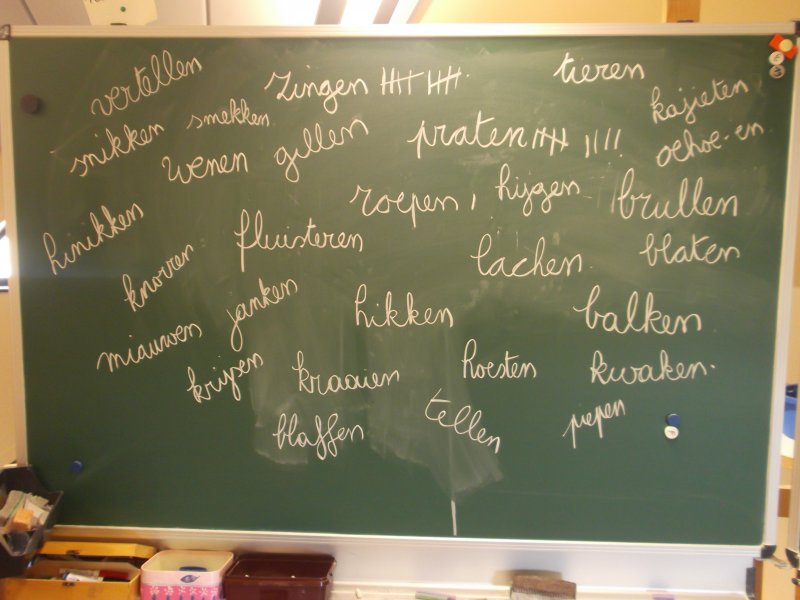 vertellen
zingen
tieren
kajieten
snikken
smekken
wenen
gillen
praten
oehoe-en
hinikken
roepen
hijgen
brullen
knorren
fluisteren
lachen
blaten
janken
hikken
balken
miauwen
krijsen
kraaien
hoesten
kwaken.
blaffen
tellen
piepen